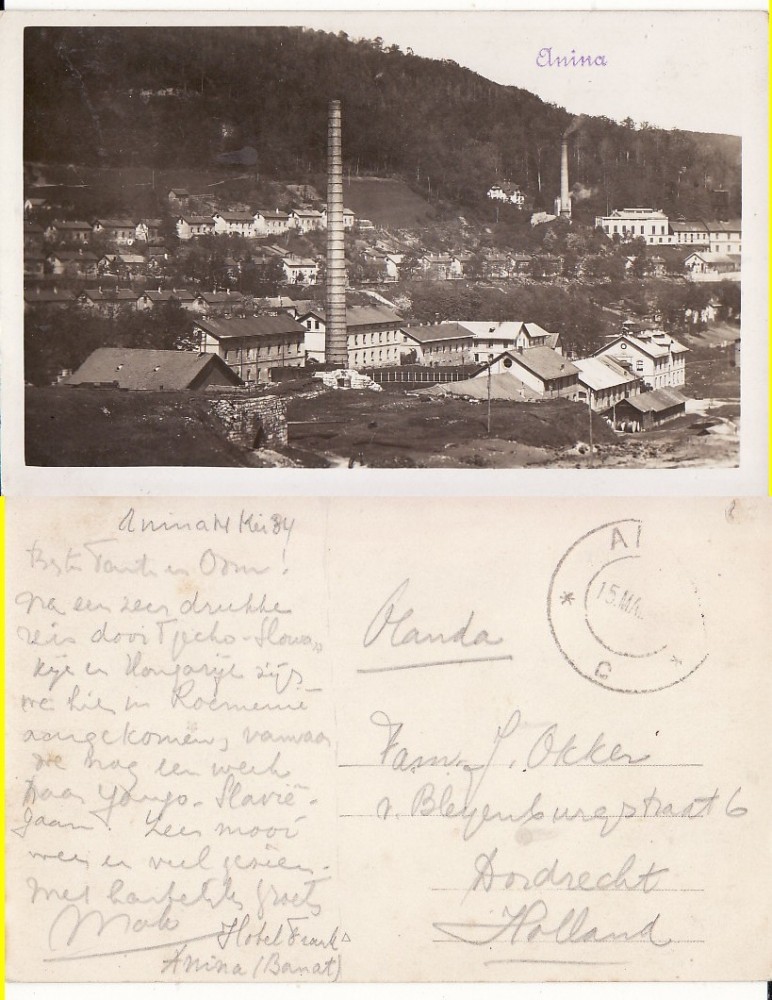 Anina
Anina 14 Mei 34
Beste Tante en Oom!
Na een zeer drukke
reis door Tjecho-Slowa-
kije en Hongarije zijn
we hier in Roemenië
aangekomen, vanwaar
we nog een week
naar Yougo-Slavië
gaan. Zeer mooi
weer en veel gezien.
Met hartelijke groets
Hotel Frank
Anina (Banat)
AI
15.MA
C
Olanda
Fam. J. Okker
v. Bleyenburgstraat 6
Dordrecht
Holland